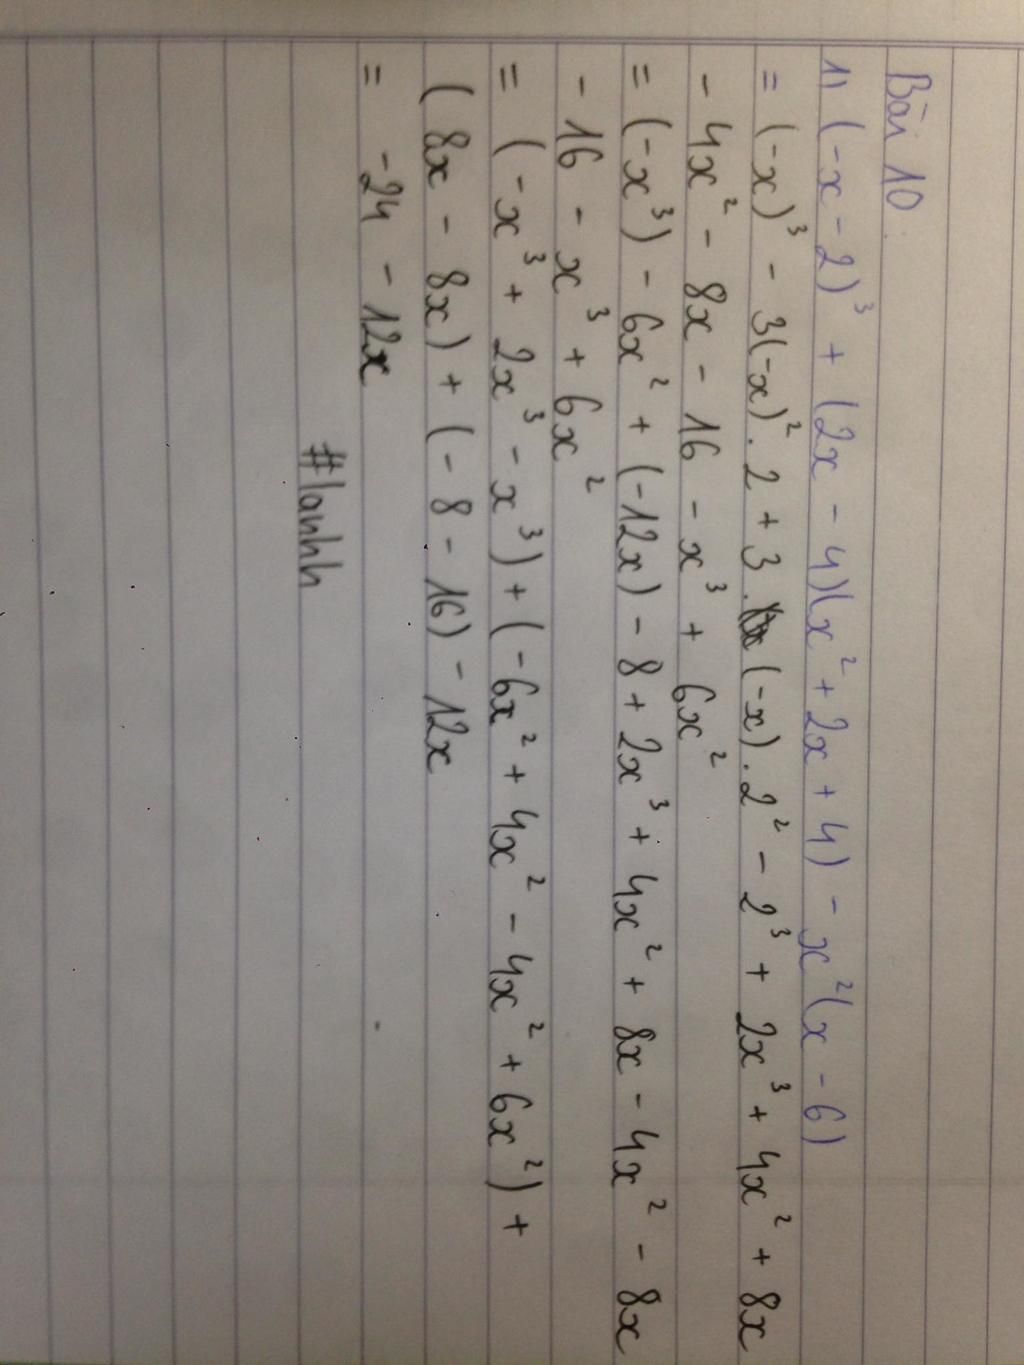 Bài 10:
1) (-x - 2)³ + (2x - 4)(x² + 2x + 4) - x²(x - 6)
= (-x)³ - 3(-x)². 2 + 3. (-x). 2² - 2³ + 2x³ + 4x² + 8x
- 4x² - 8x - 16 - x³ + 6x²
= (-x³) - 6x² + (-12x) - 8 + 2x³ + 4x² + 8x - 4x² - 8x
- 16 - x³ + 6x²
= (-x³ + 2x³ - x³) + (-6x² + 4x² - 4x² + 6x²) +
(8x - 8x) + (- 8 - 16) - 12x
= -24 - 12x
#lanhh